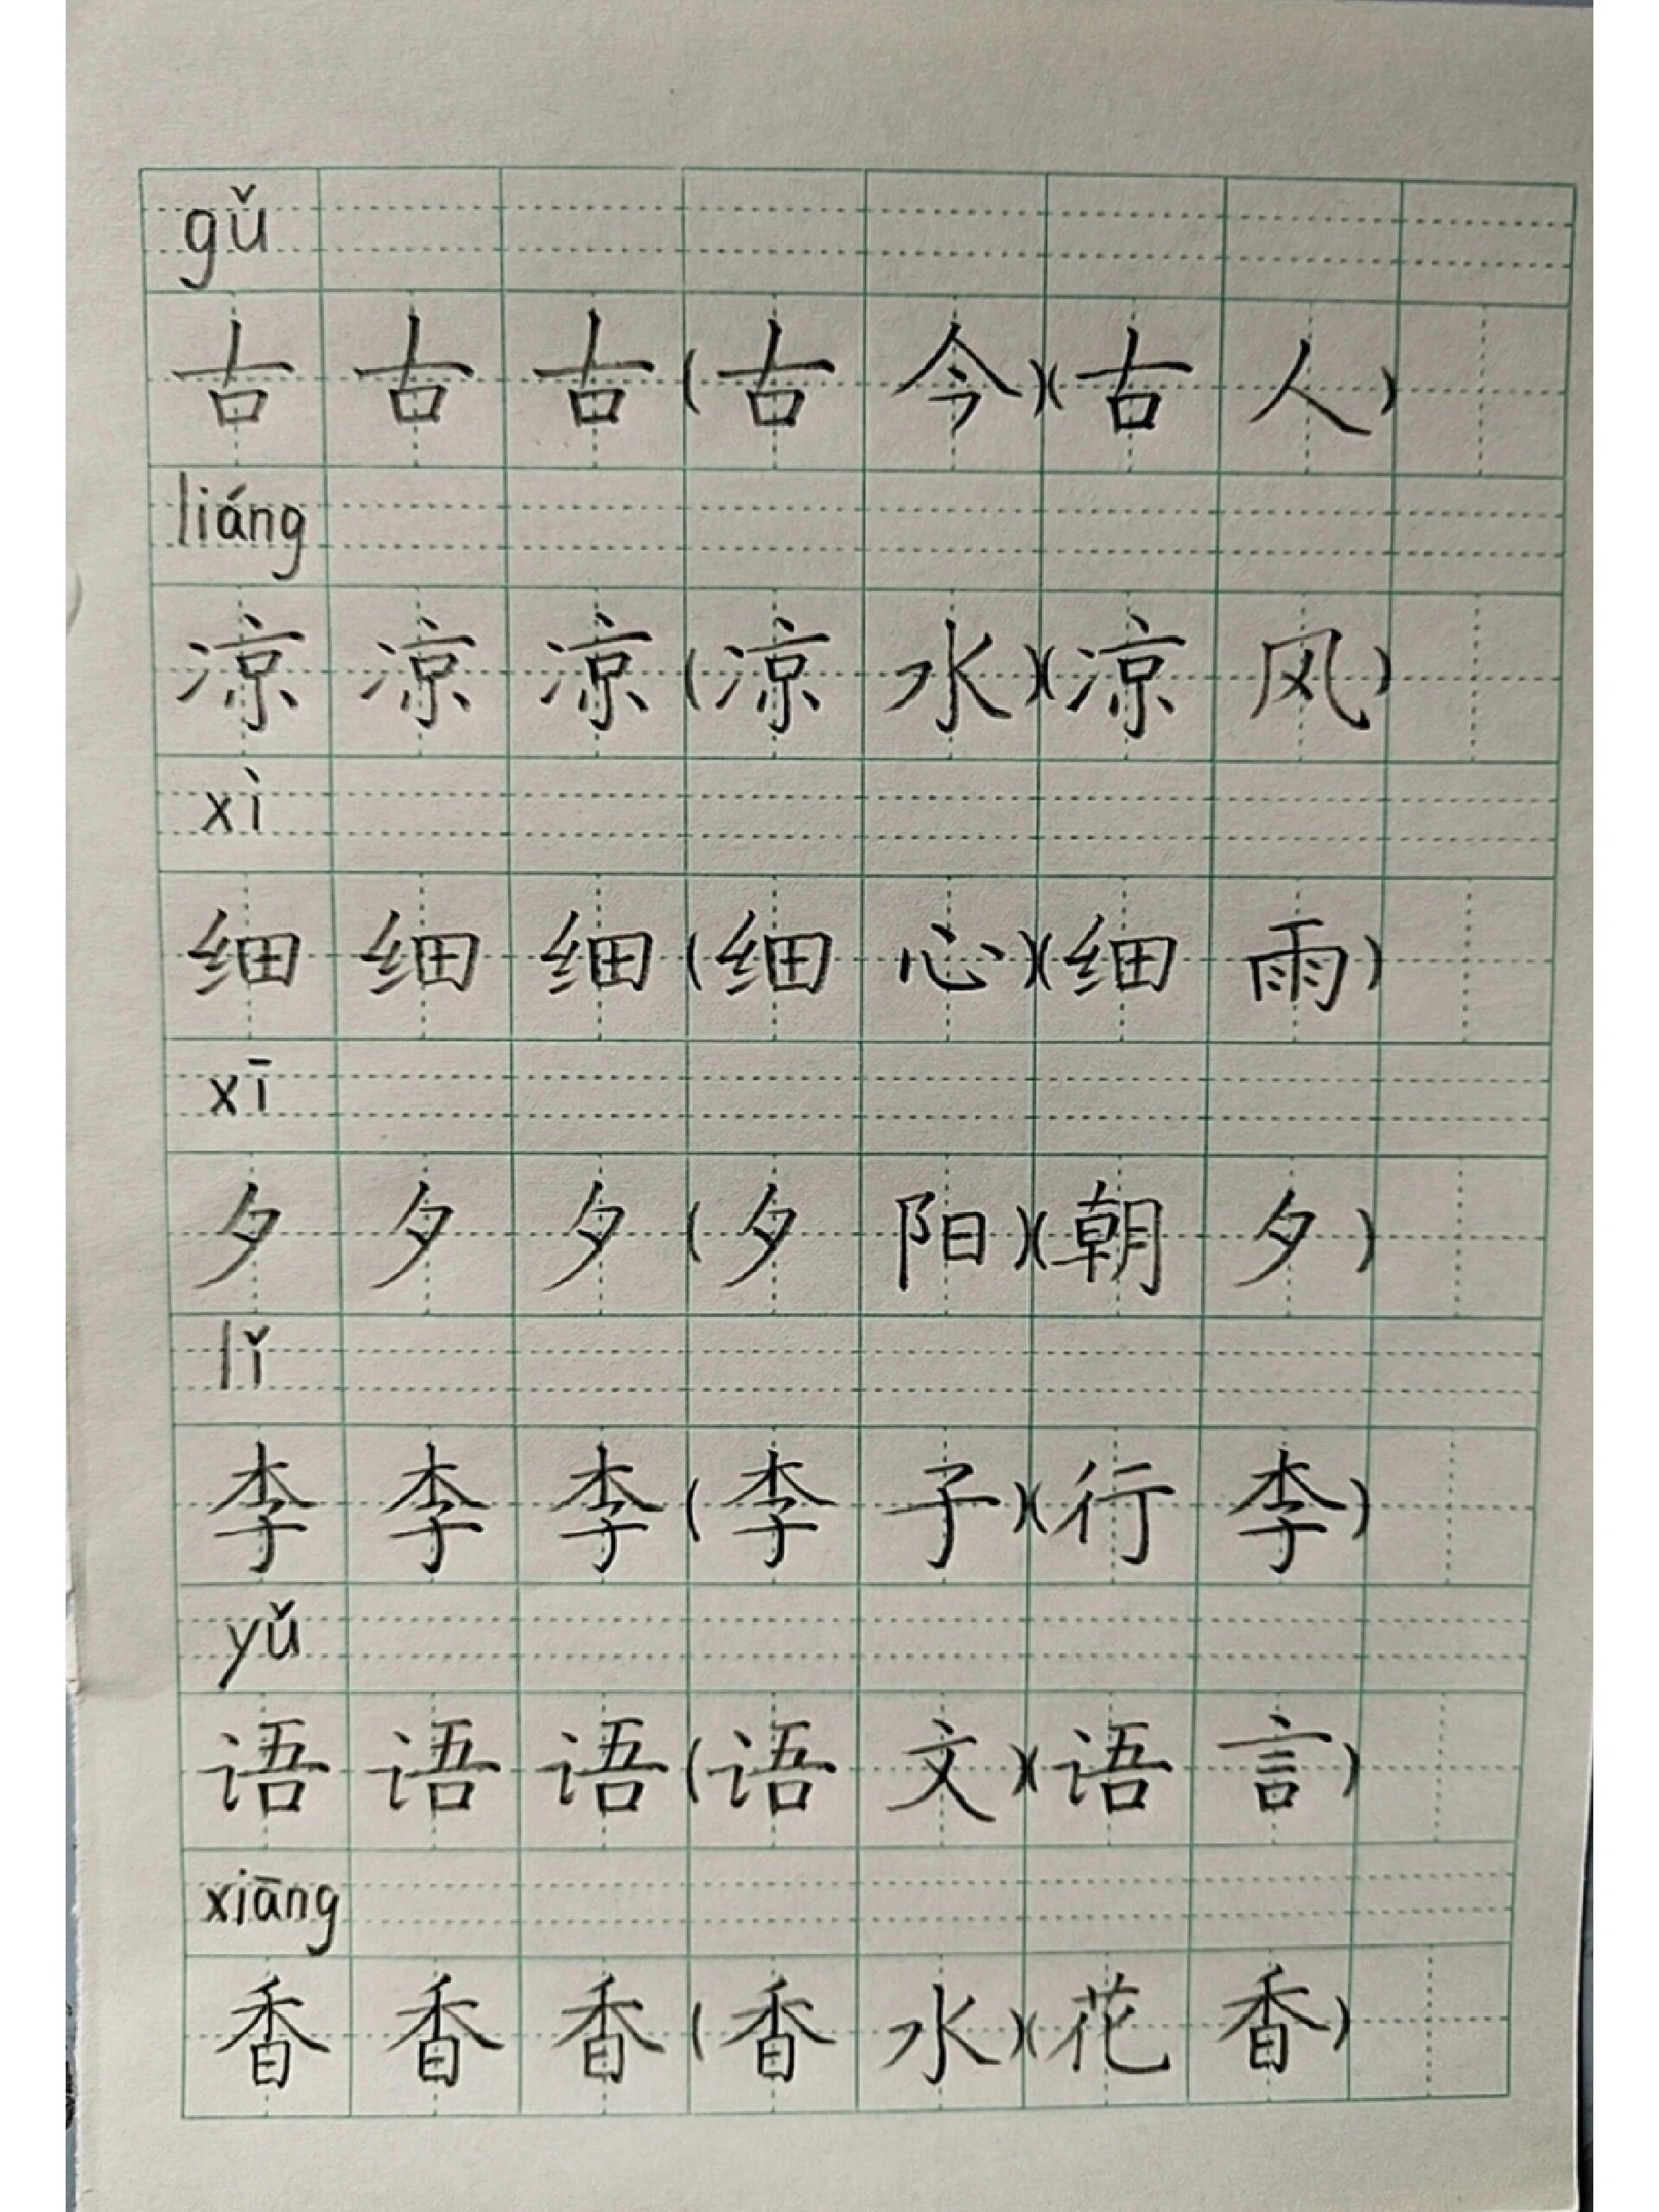 gǔ
古古古(古今)(古人)
liáng
凉凉凉(凉水)(凉风)
xì
细细细(细心)(细雨)
xī
夕夕夕(夕阳)(朝夕)
lǐ
李李李(李子)(行李)
yǔ
语语语(语文)(语言)
xiāng
香香香(香水)(花香)